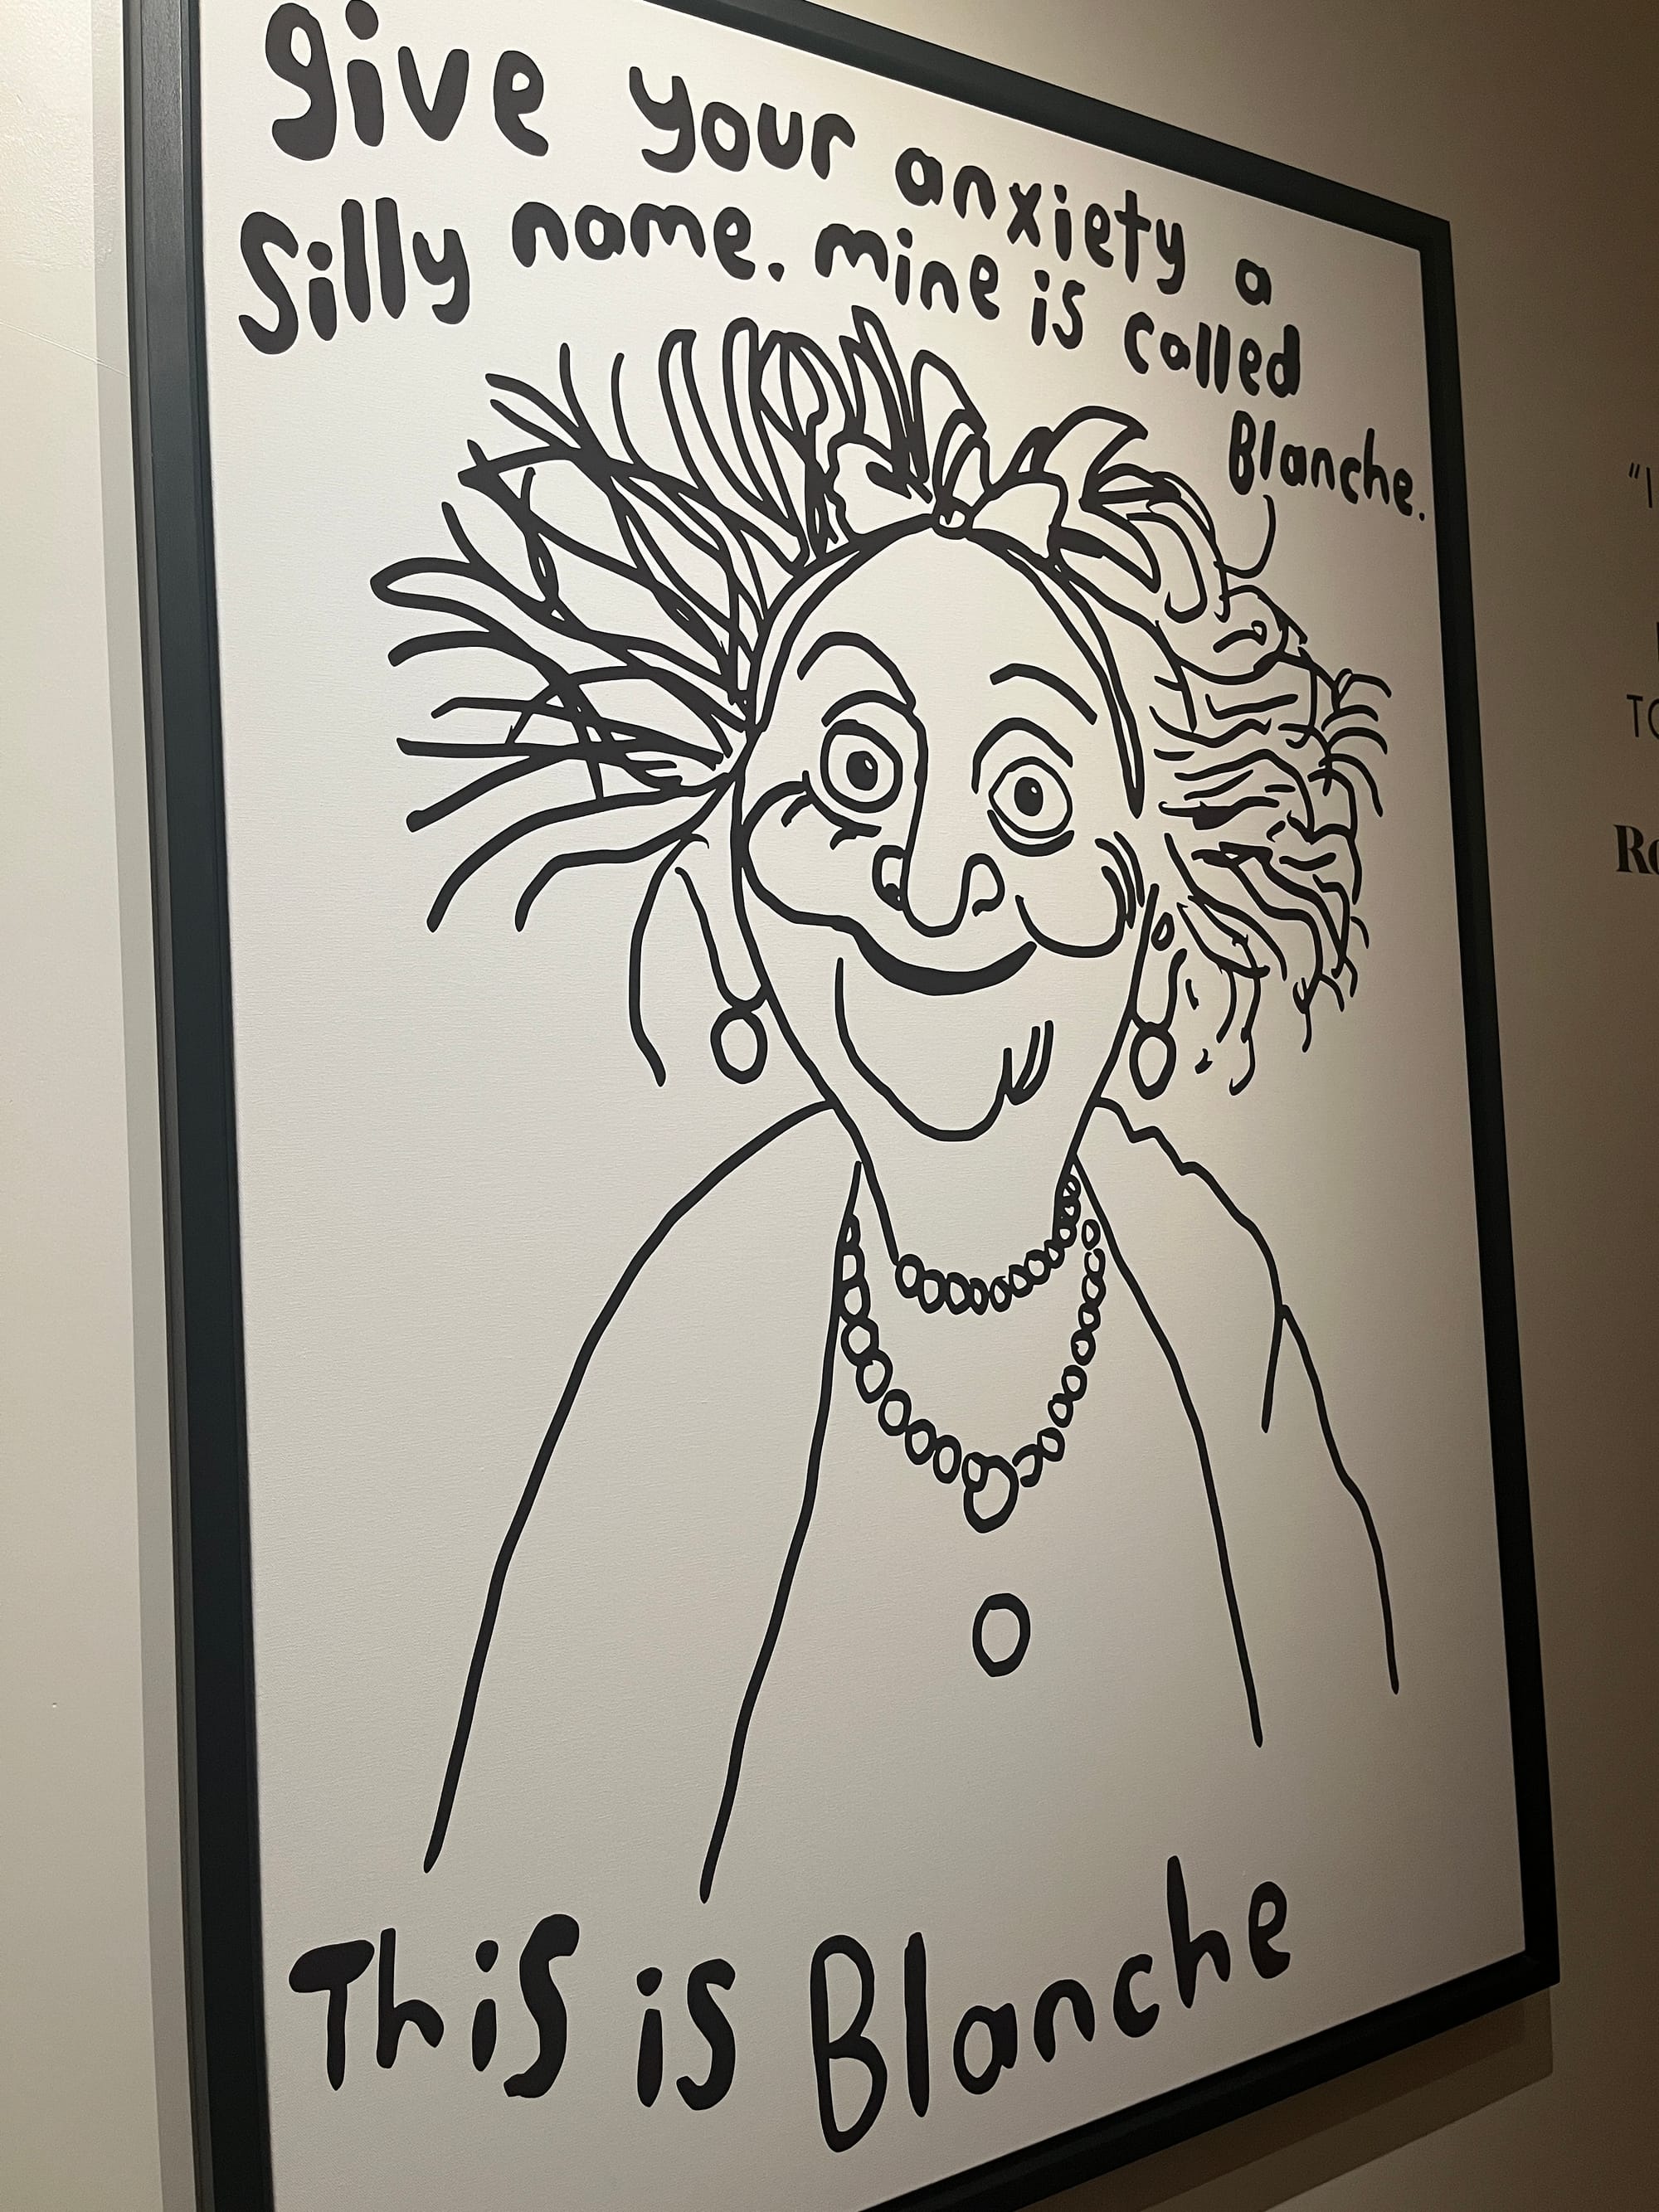 give your anxiety a
Silly name. mine is called
Blanche.
This is Blanche
"I
TO